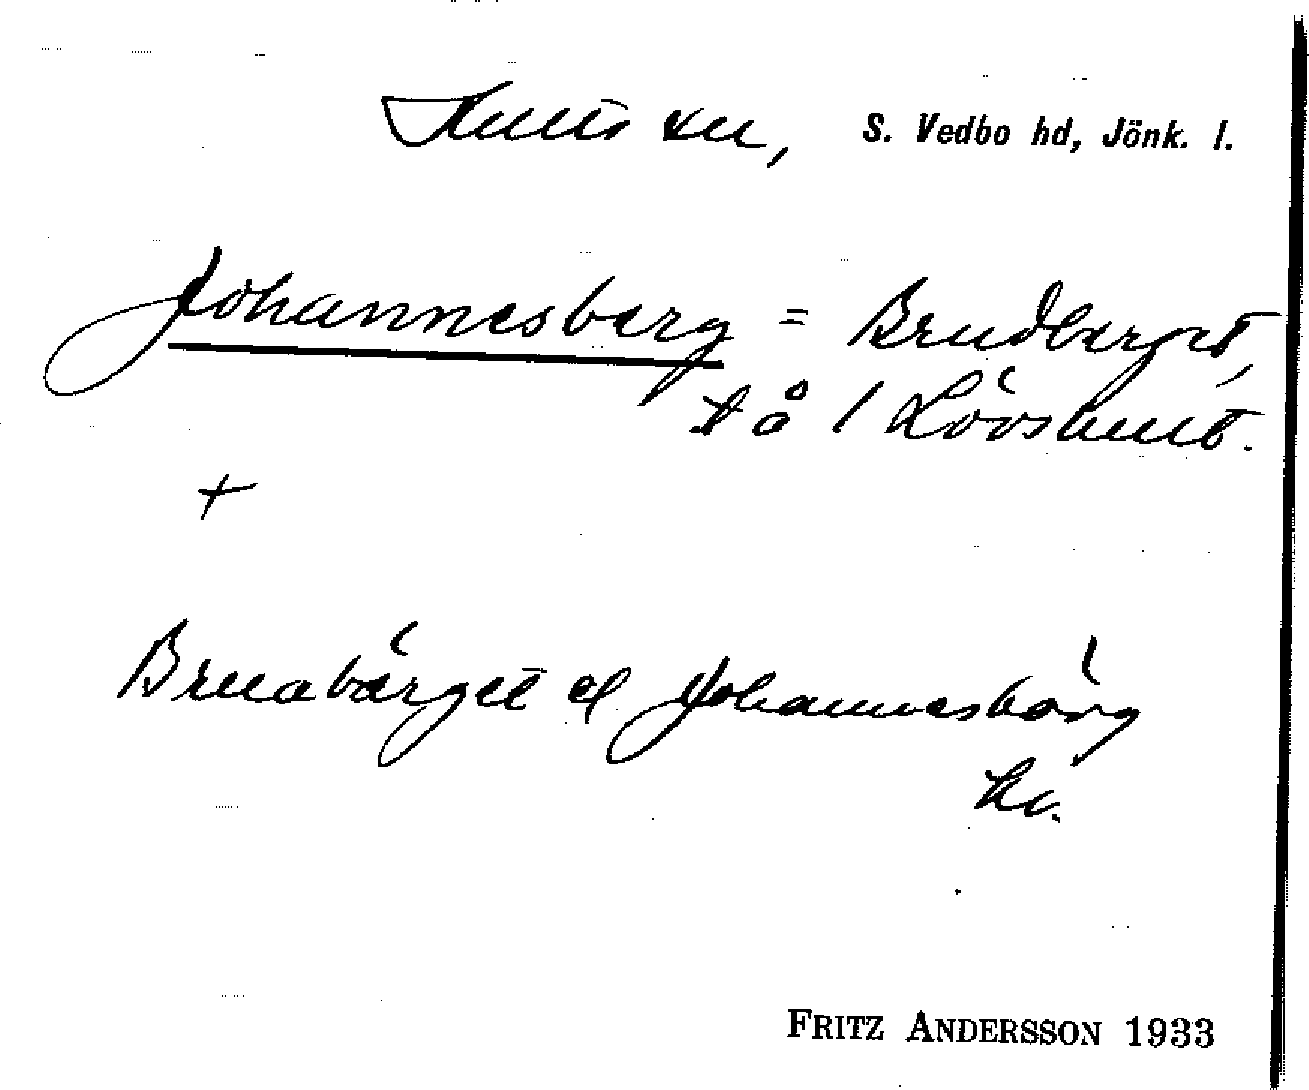 S. Vedbo hd, Jönk. l.
Johannesberg = Brudberget,
tå / Lövshult.
+
Bruabärget el Johannesbärg
FRITZ ANDERSSON 1933